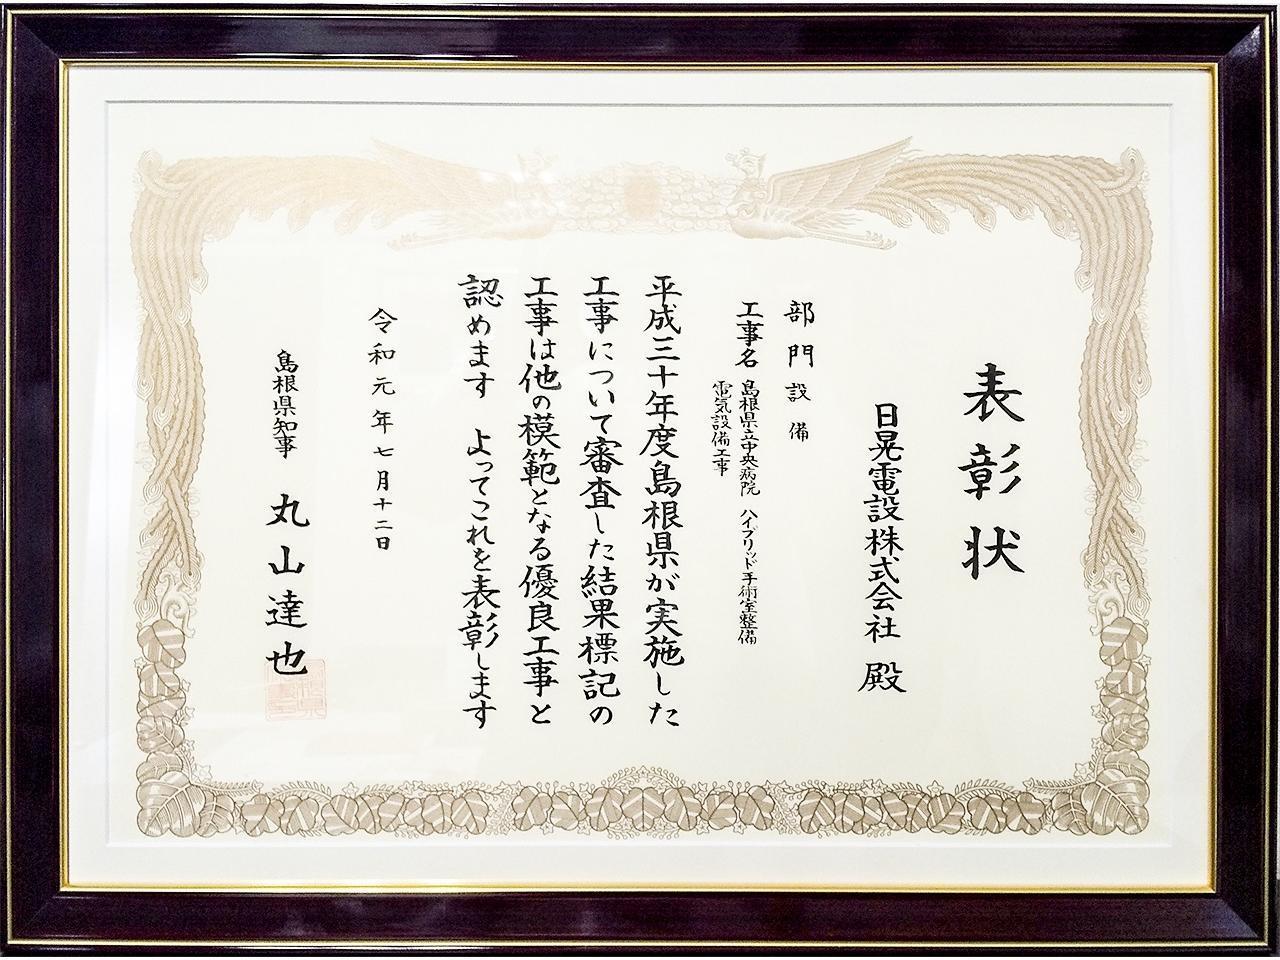 表彰状
日晃電設株式会社 殿
部門 設備
工事名 島根県立中央病院 ハイブリッド手術室整備
電気設備工事
平成三十年度島根県が実施した
工事について審査した結果標記の
工事は他の模範となる優良工事と
認めます よってこれを表彰します
令和元年七月十二日
島根県知事 丸山達也